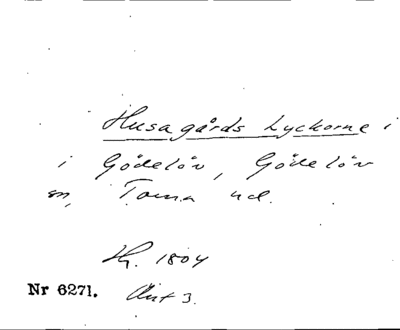 Husagårds Lyckorne i
i Gödelöv, Gödelöv
sn, Torna hd.
H. 1804
Nr 6271. Akt 3.